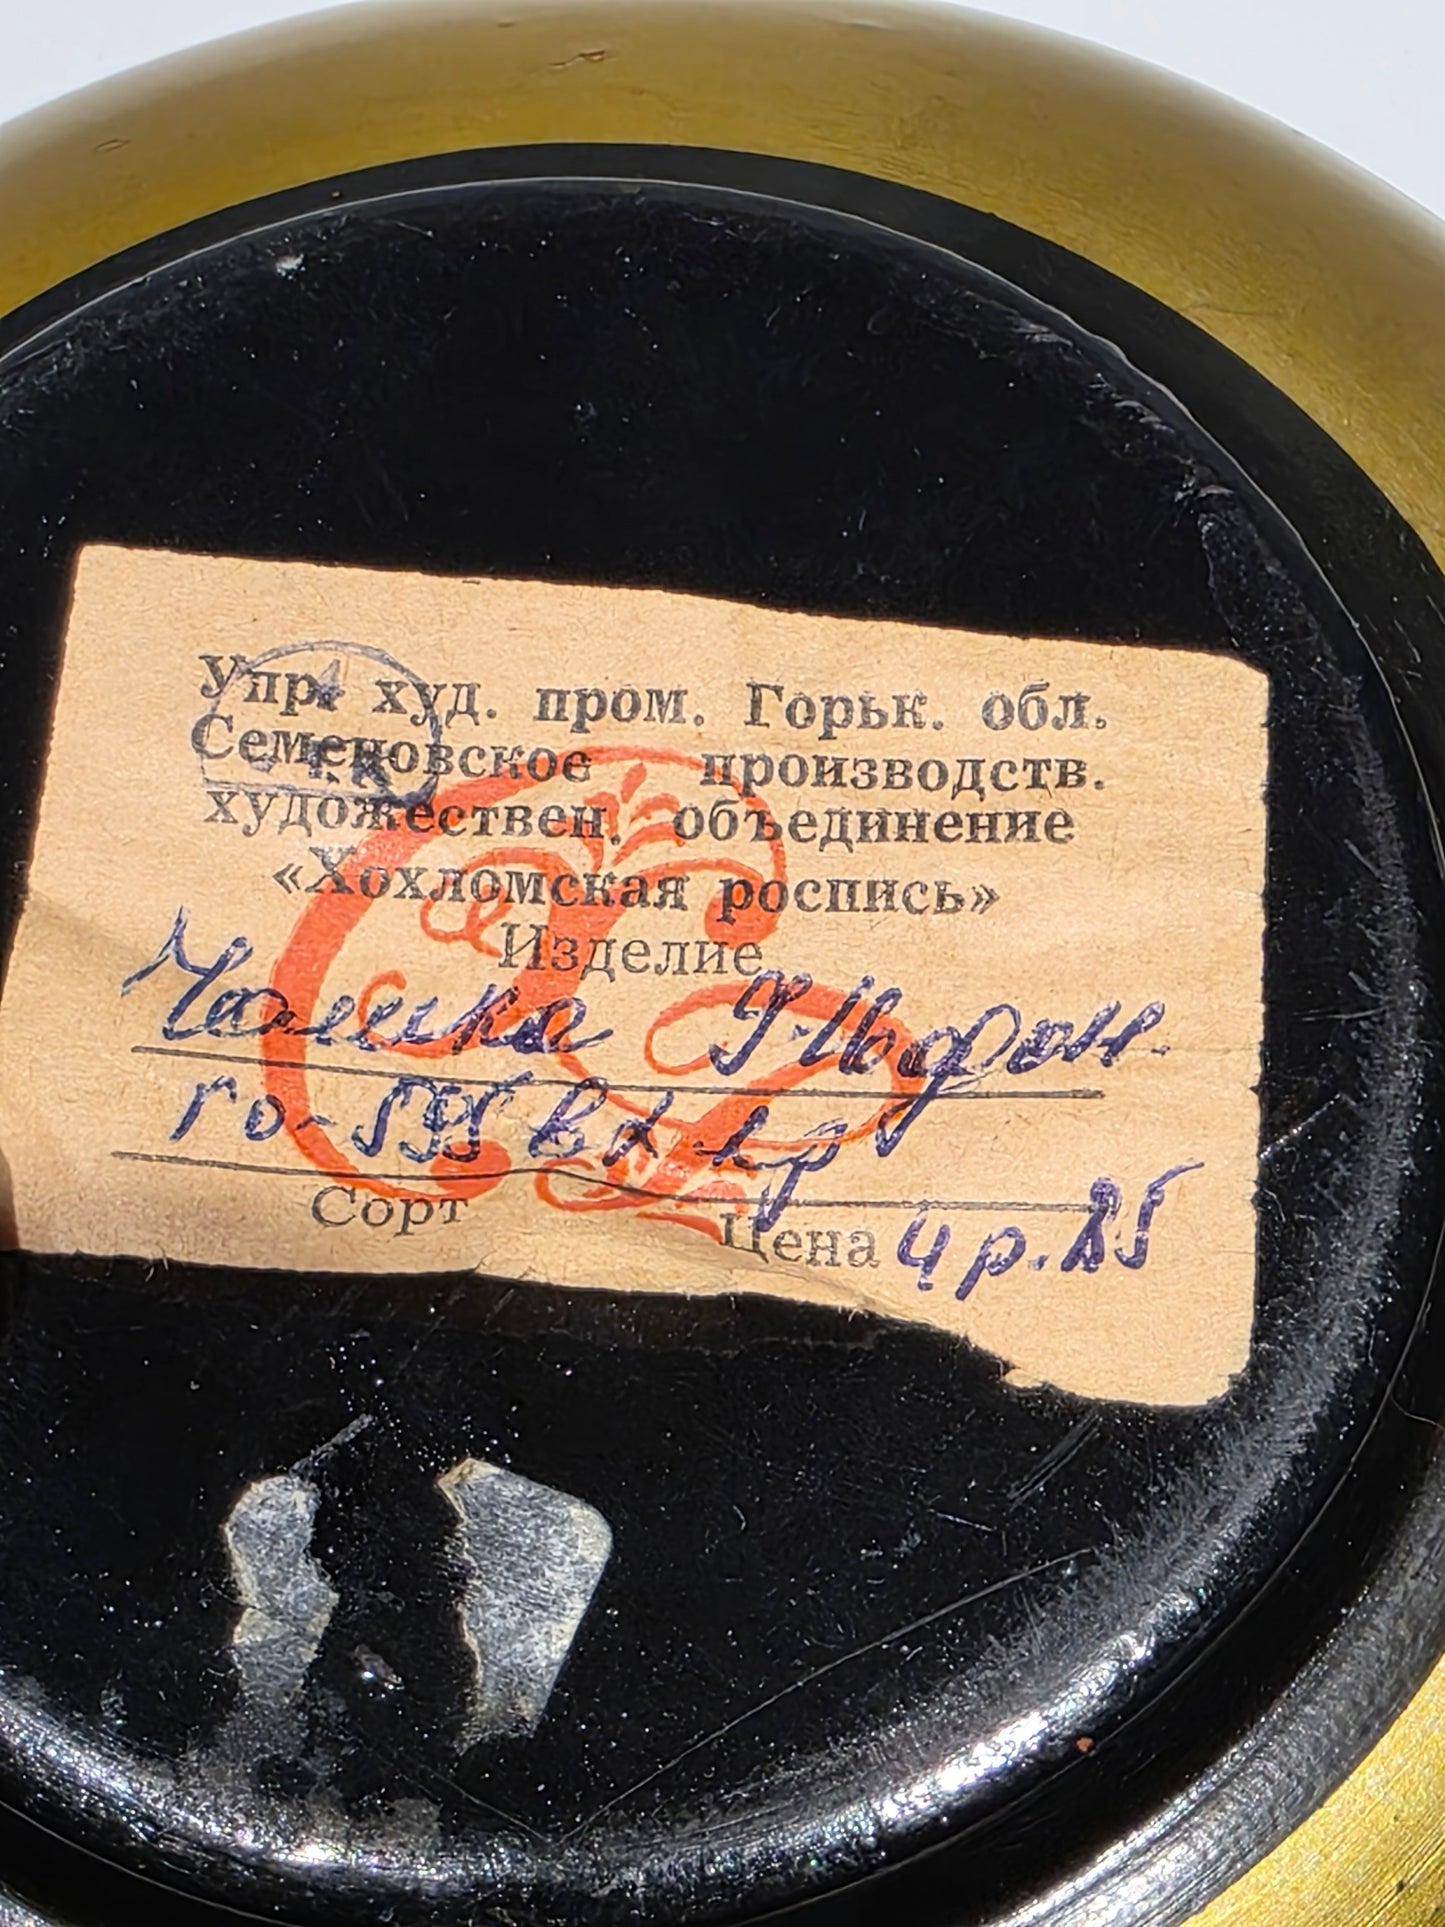 Упр. худ. пром. Горьк. обл.
Семеновское производств.
художествен. объединение
«Хохломская роспись»
Изделие
Чашка
го-595
Сорт Цена 4 р. 25